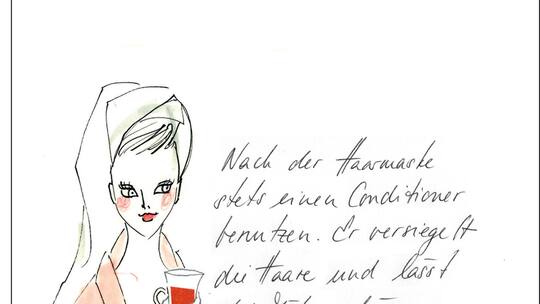 Nach der Haarmaske
stets einen Conditioner
benutzen. Er versiegelt
die Haare und lässt